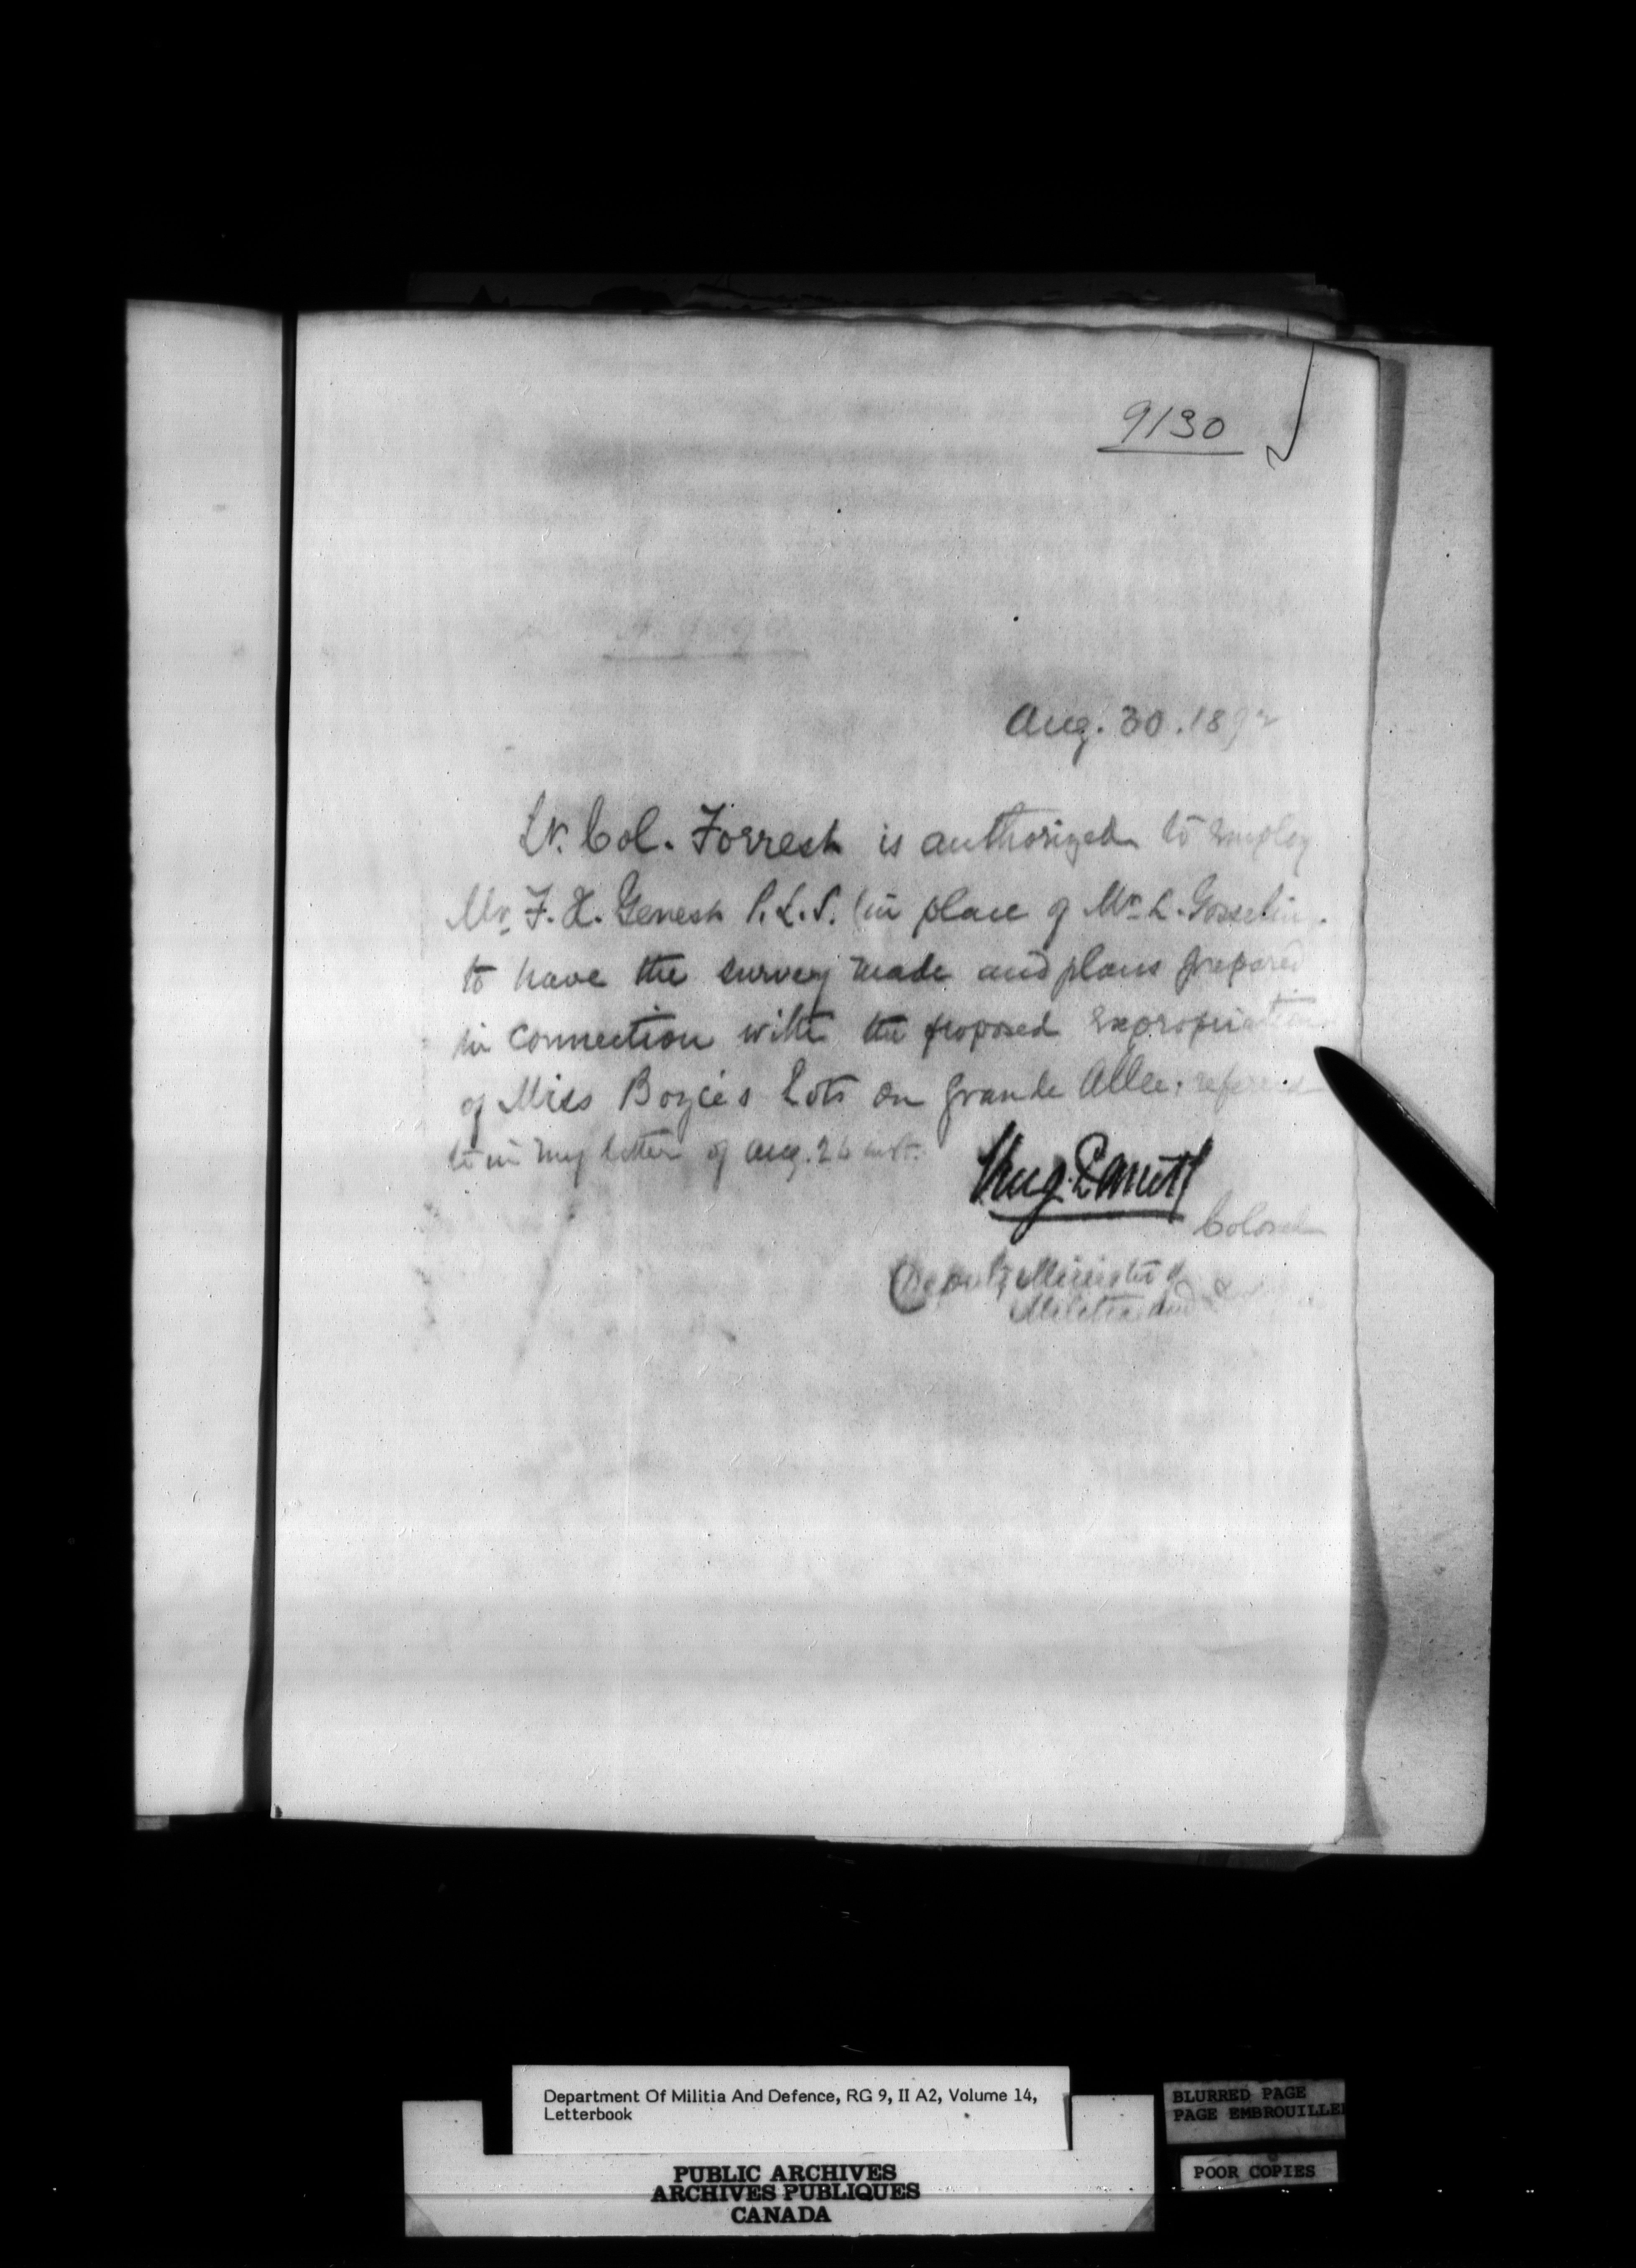 9130
Aug. 30. 1892
Lt. Col. Forrest is authorized to employ
Mr. F. X. Genest P.L.S. (in place of Mr. L. Gosselin
to have the survey made and plans prepared
in connection with the proposed expropriation
of Miss Boyce's Lots on Grande Allee, referred
to in my letter of Aug. 26 inst.
Colonel
Deputy Minister of
Militia and
Department Of Militia And Defence, RG 9, II A2, Volume 14,
Letterbook
PUBLIC ARCHIVES
ARCHIVES PUBLIQUES
CANADA
BLURRED PAGE
PAGE EMBROUILLE
POOR COPIES